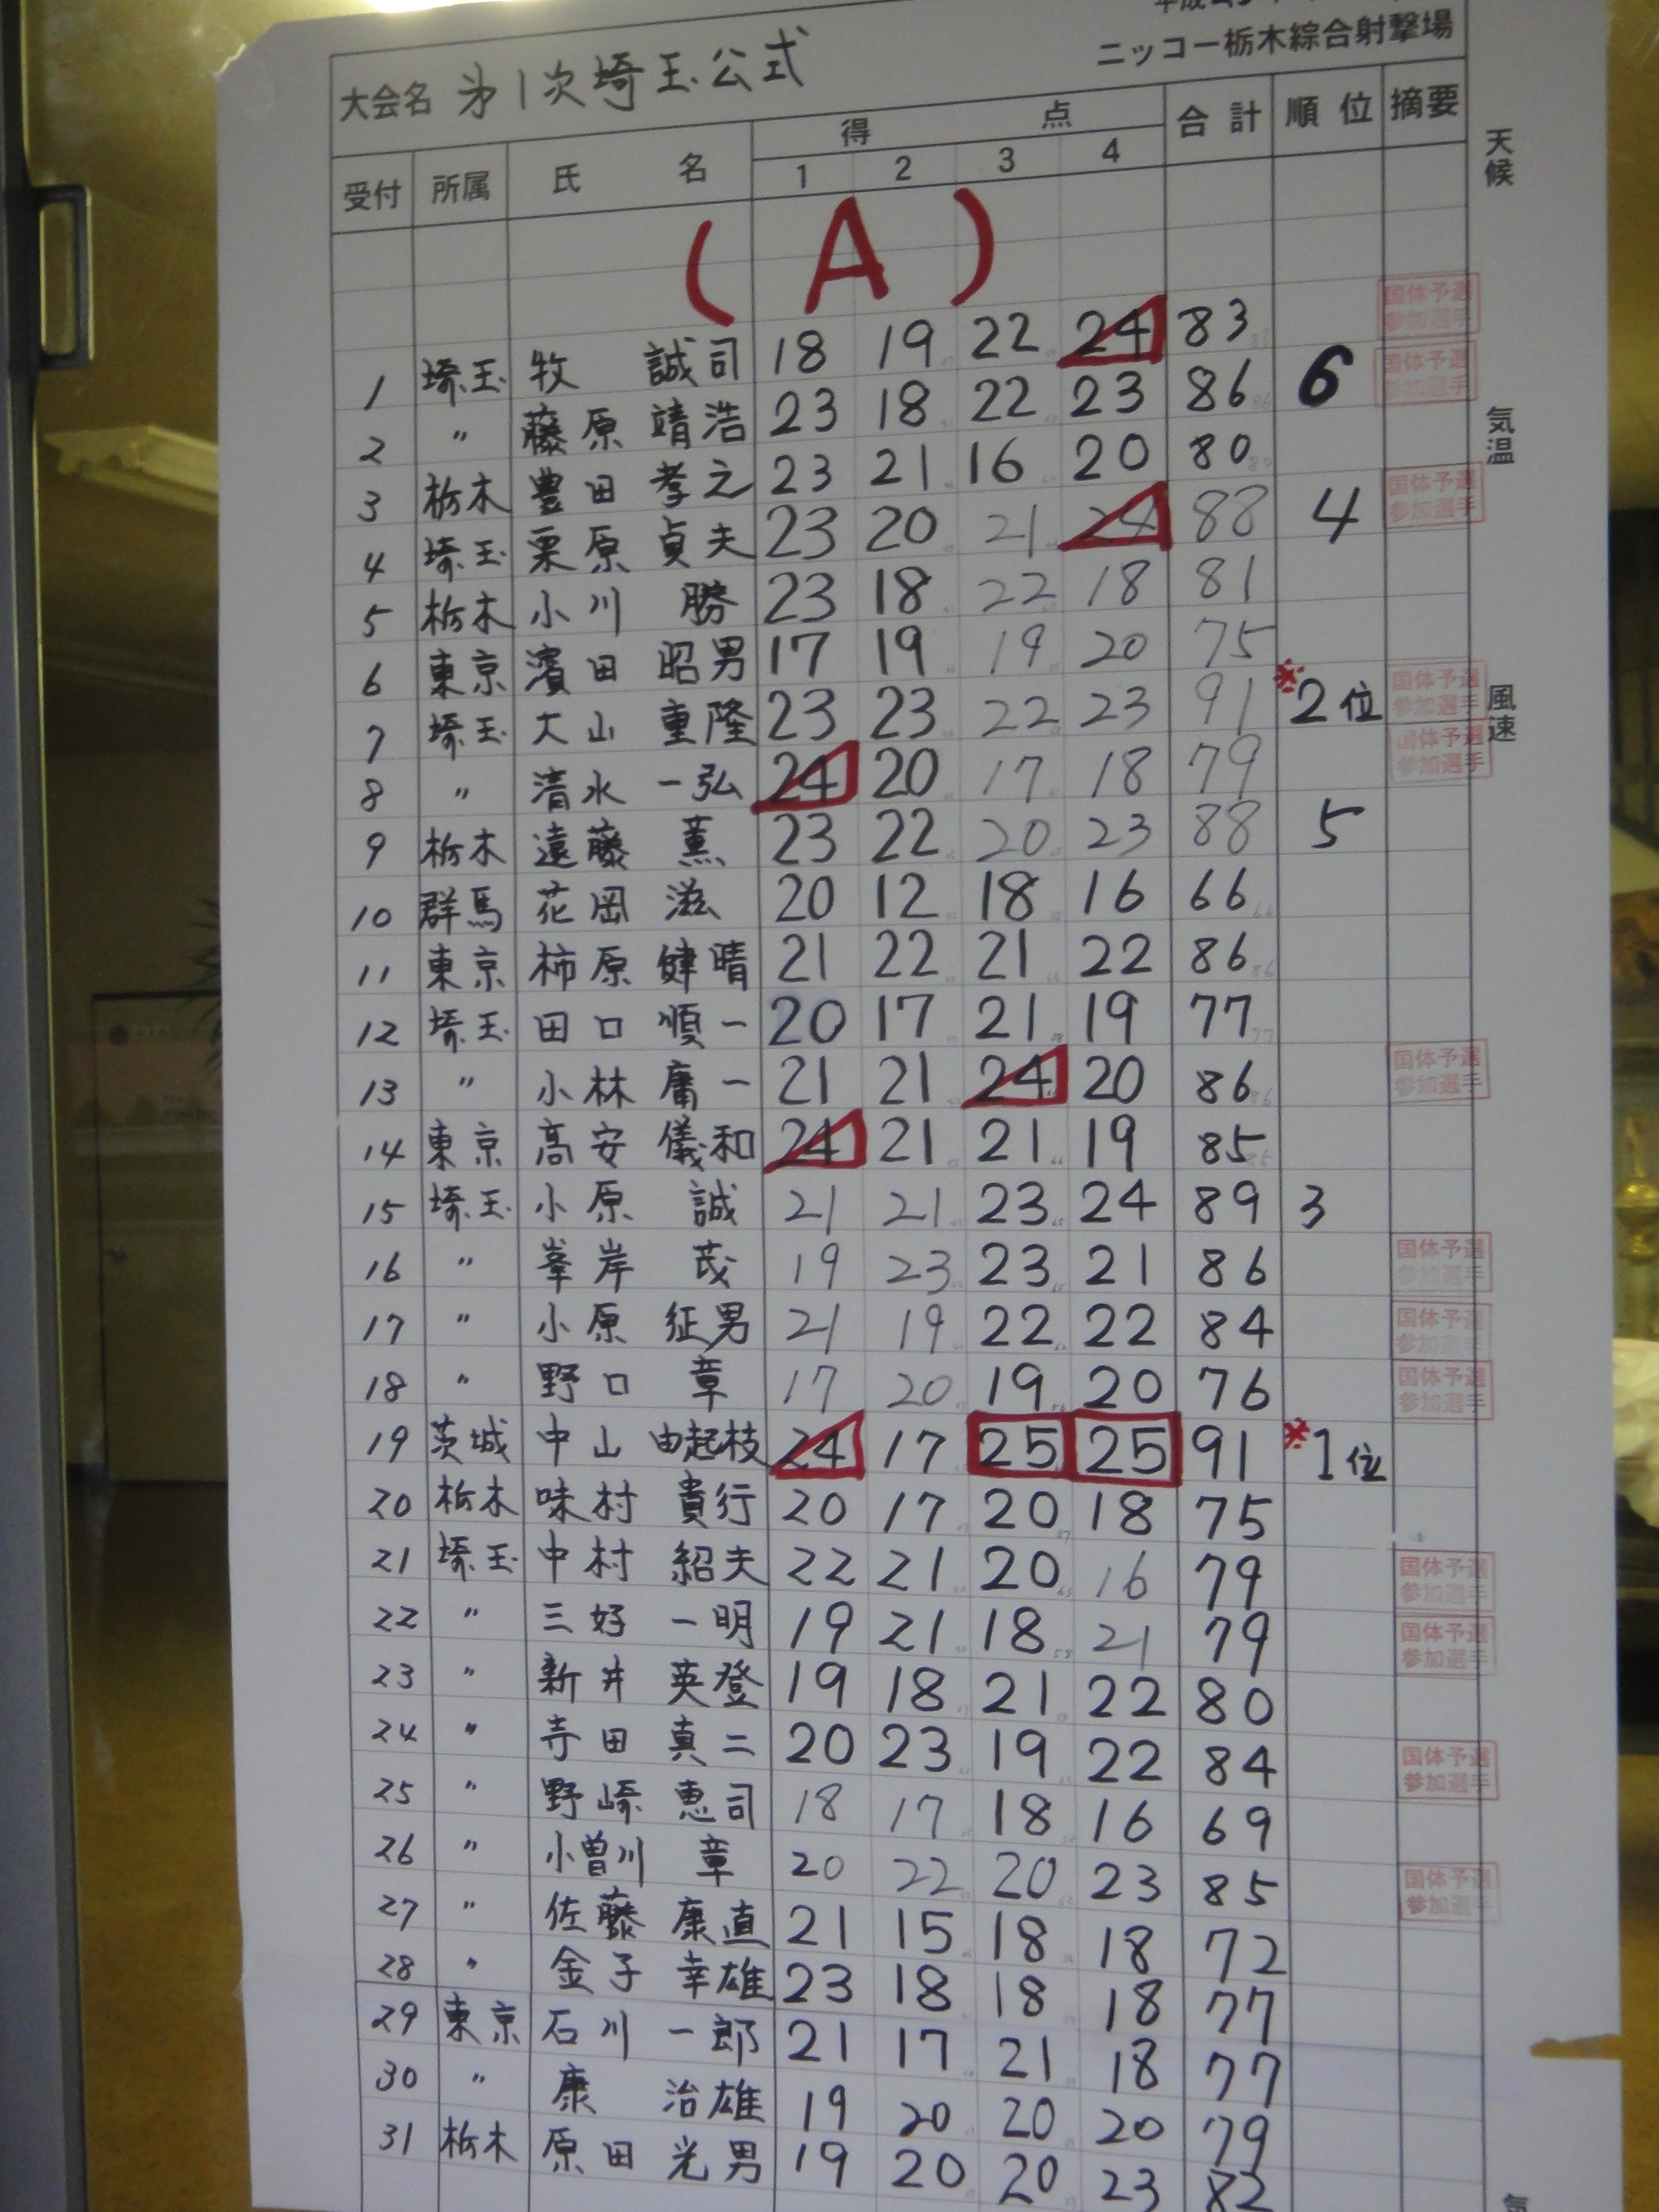 ニッコー栃木綜合射撃場
大会名 第1次埼玉公式
受付 所属 氏名 得点 合計 順位 摘要
1 2 3 4
(A)
1 埼玉 牧 誠司 18 19 22 24 83 国体予選参加選手
2 〃 藤原 靖浩 23 18 22 23 86 6 国体予選参加選手
3 栃木 豊田 孝之 23 21 16 20 80
4 埼玉 栗原 貞夫 23 20 21 24 88 4 国体予選参加選手
5 栃木 小川 勝 23 18 22 18 81
6 東京 濱田 昭男 17 19 19 20 75
7 埼玉 大山 重隆 23 23 22 23 91 ※2位 国体予選参加選手
8 〃 清水 一弘 24 20 17 18 79 国体予選参加選手
9 栃木 遠藤 薫 23 22 20 23 88 5
10 群馬 花岡 滋 20 12 18 16 66
11 東京 柿原 健晴 21 22 21 22 86
12 埼玉 田口 順一 20 17 21 19 77
13 〃 小林 庸一 21 21 24 20 86 国体予選参加選手
14 東京 高安 儀和 24 21 21 19 85
15 埼玉 小原 誠 21 21 23 24 89 3
16 〃 峯岸 茂 19 23 23 21 86 国体予選参加選手
17 〃 小原 征男 21 19 22 22 84 国体予選参加選手
18 〃 野口 章 17 20 19 20 76 国体予選参加選手
19 茨城 中山 由起枝 24 17 25 25 91 ※1位
20 栃木 味村 貴行 20 17 20 18 75
21 埼玉 中村 紹夫 22 21 20 16 79 国体予選参加選手
22 〃 三好 一明 19 21 18 21 79 国体予選参加選手
23 〃 新井 英登 19 18 21 22 80
24 〃 寺田 真二 20 23 19 22 84 国体予選参加選手
25 〃 野崎 恵司 18 17 18 16 69
26 〃 小曽川 章 20 22 20 23 85 国体予選参加選手
27 〃 佐藤 康直 21 15 18 18 72
28 〃 金子 幸雄 23 18 18 18 77
29 東京 石川 一郎 21 17 21 18 77
30 〃 康 治雄 19 20 20 20 79
31 栃木 原田 光男 19 20 20 23 82
天候
気温
風速